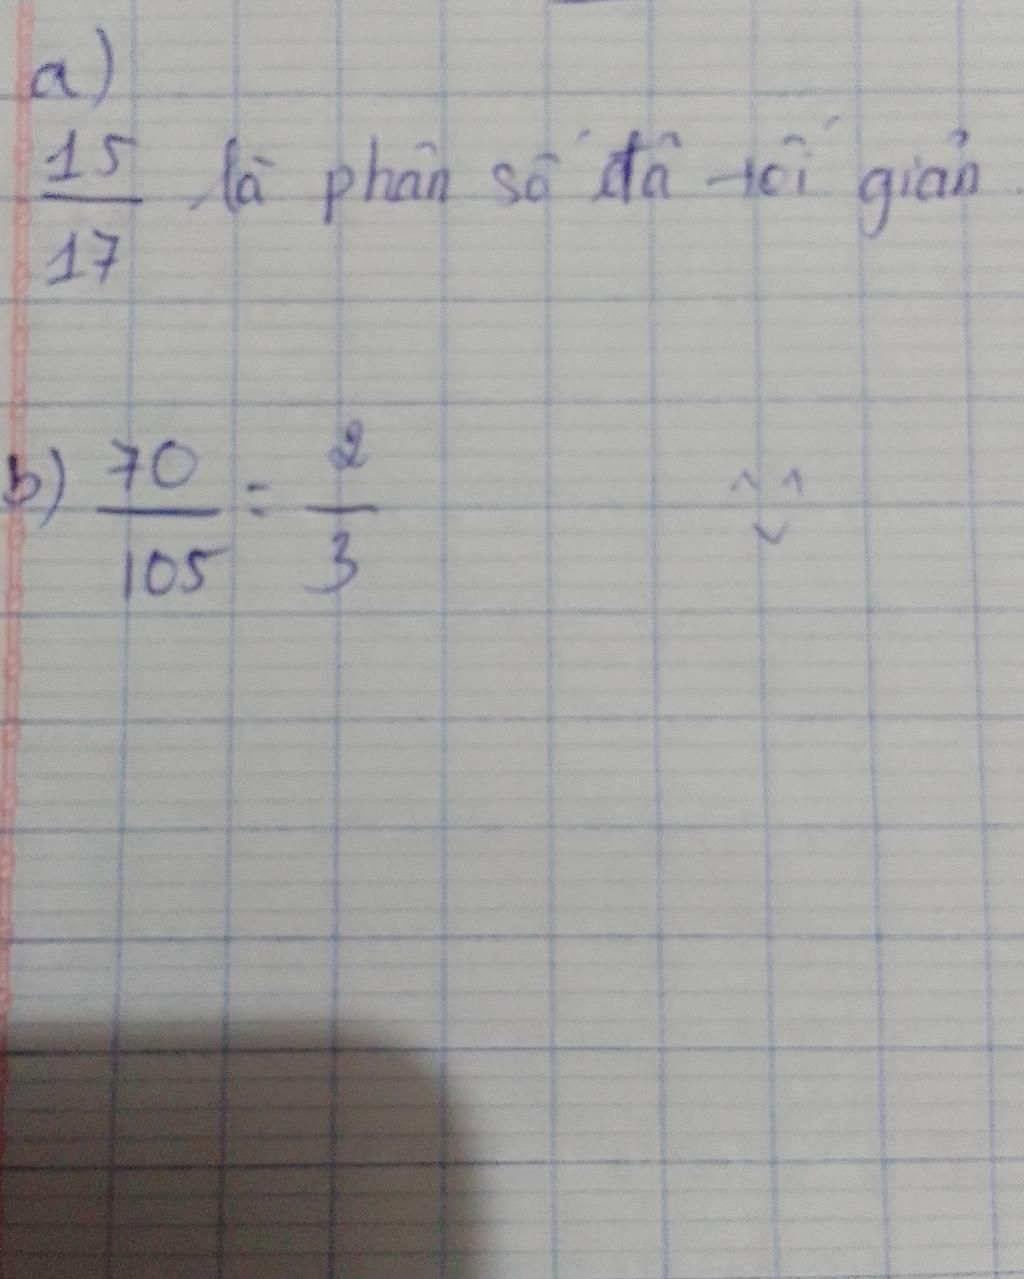 a)
15/17 là phân số đã tối giản.
b) 70/105 = 2/3